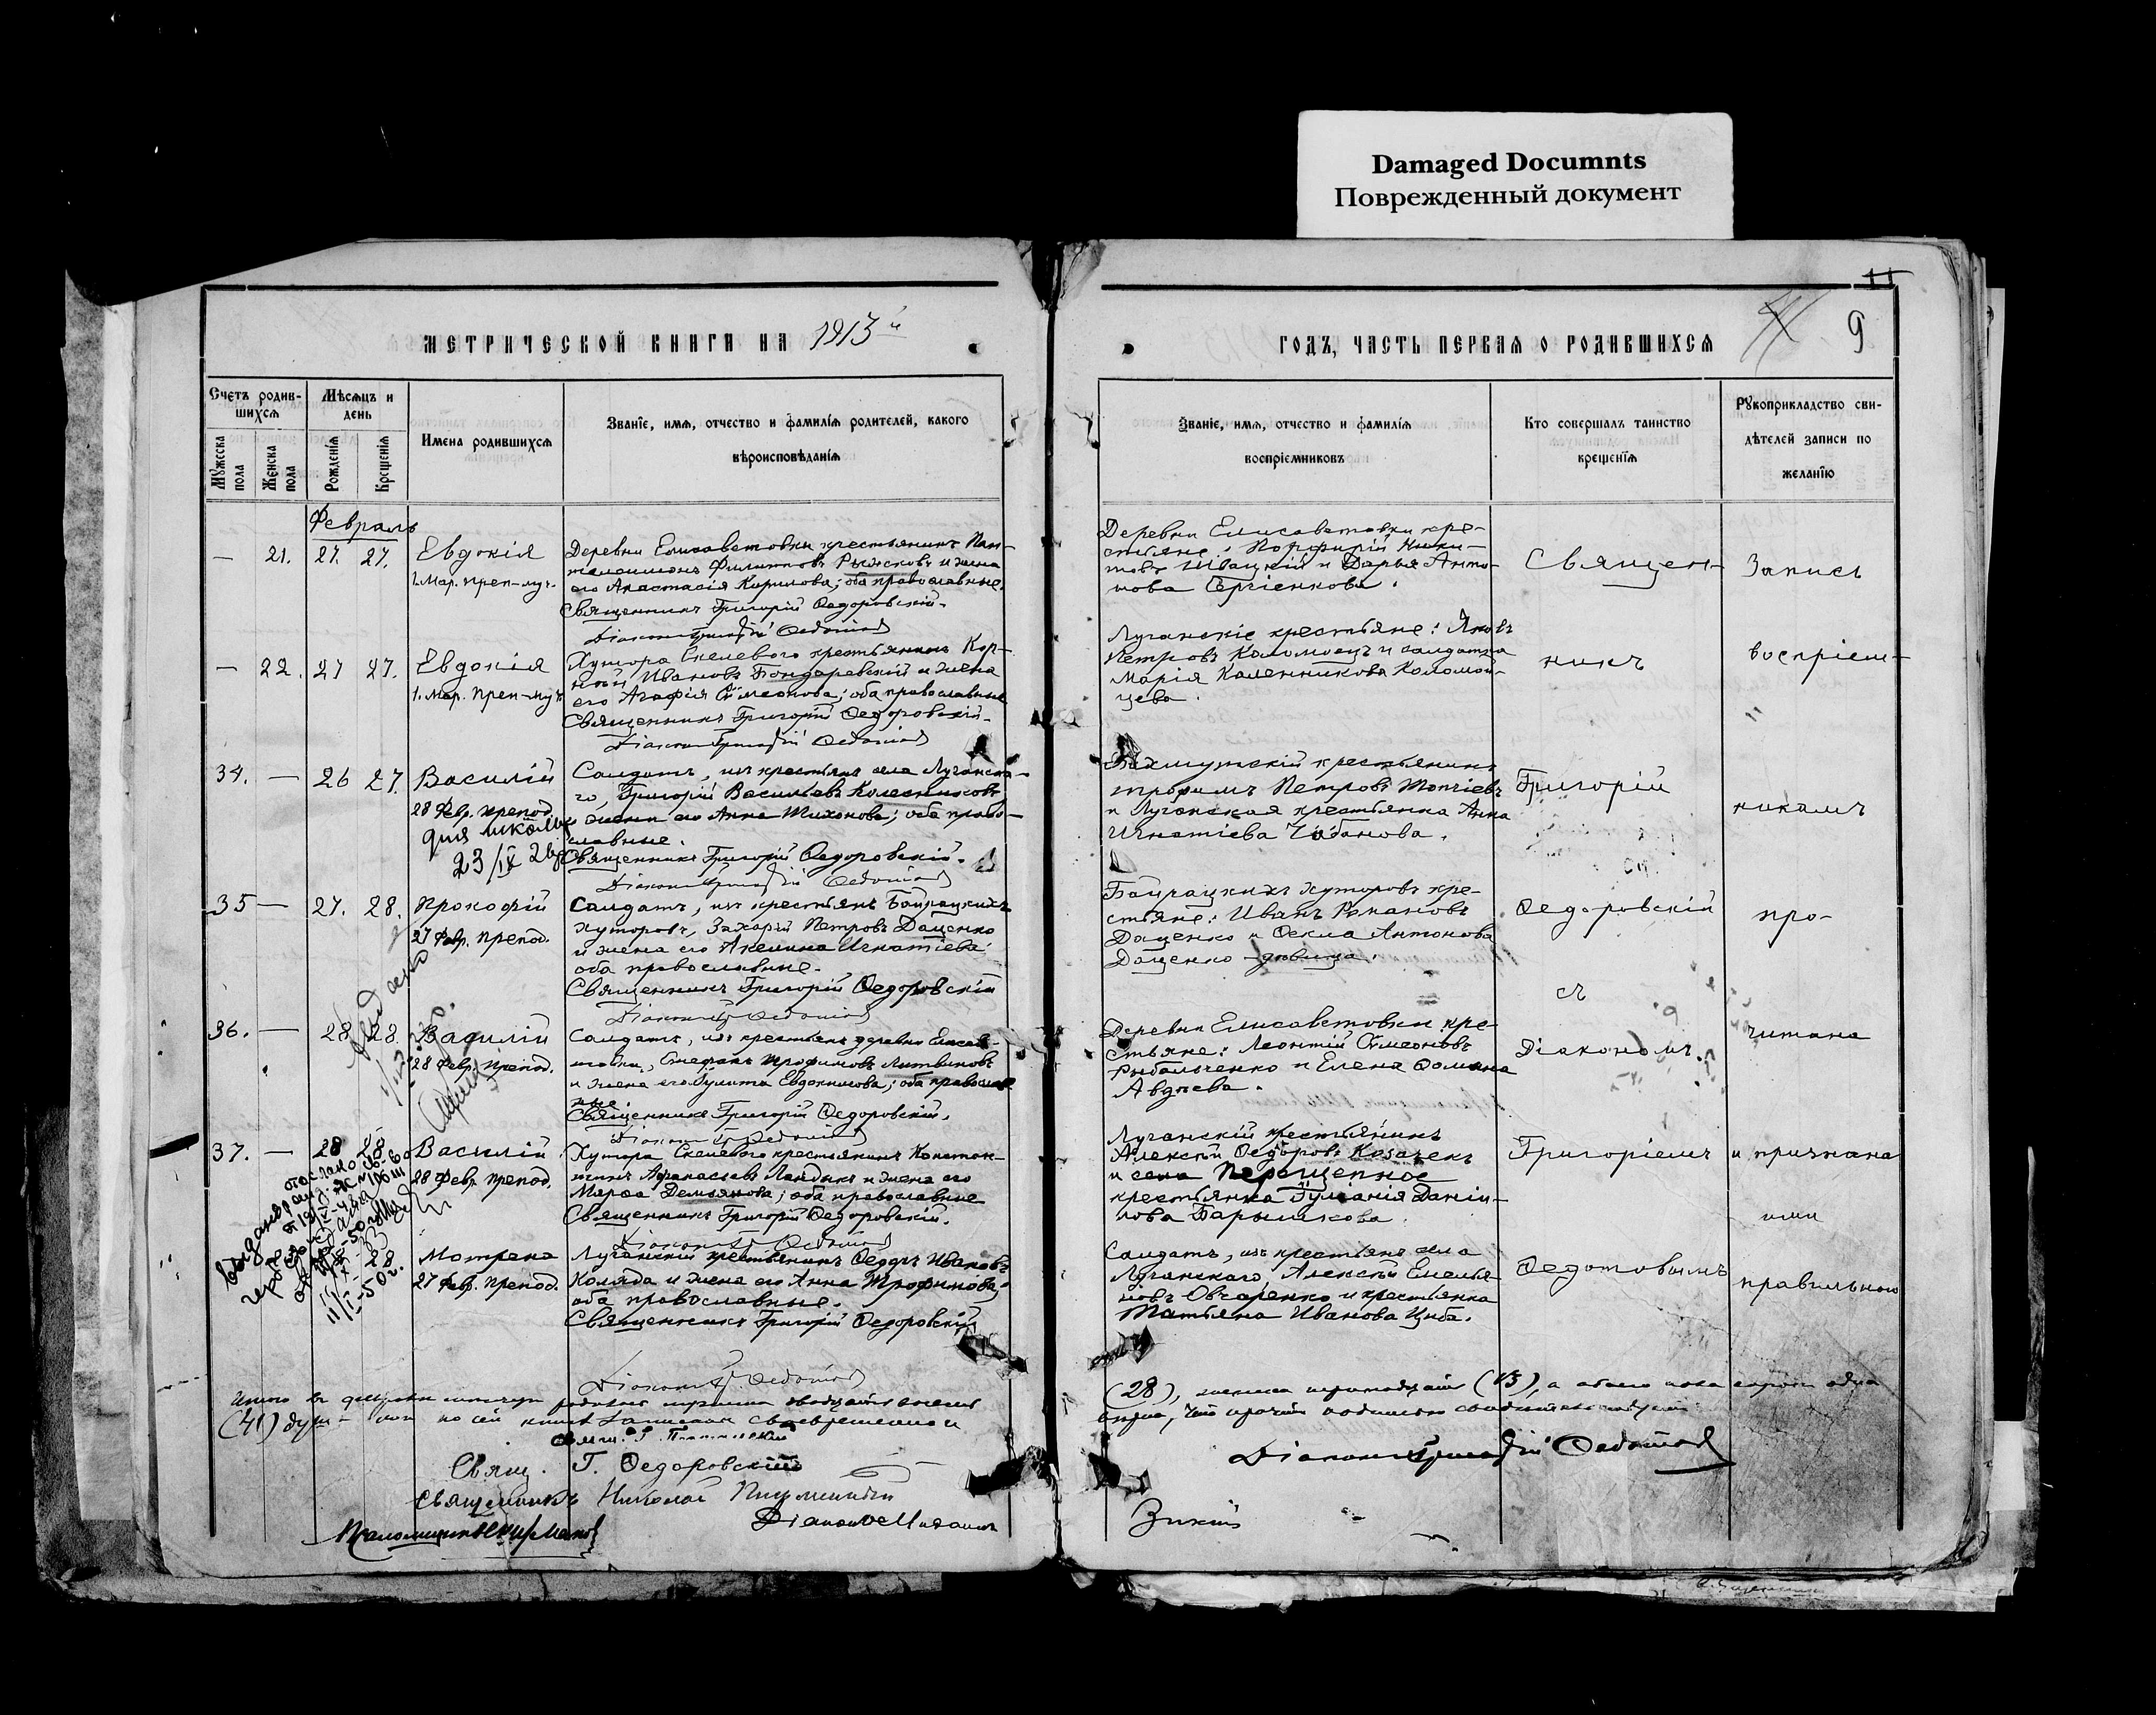 Damaged Documnts
Поврежденный документ
11
МЕТРИЧЕСКОЙ КНИГИ НА 1913й
ГОДЪ, ЧАСТЬ ПЕРВАЯ О РОДИВШИХСЯ
9
Счетъ родив-
шихся
Мужеска пола
Женска пола
Мѣсяцъ и
день
Рожденія
Крещенія
Имена родившихся
Званіе, имя, отчество и фамилія родителей, какого
вѣроисповѣданія
Званіе, имя, отчество и фамилія
воспріемниковъ
Кто совершалъ таинство
крещенія
Рукоприкладство сви-
дѣтелей записи по
желанію
Февраль
— 21. 27. 27. Евдокія
1. Мар. преп-муч.
Деревни Елисаветовки крестьянинъ Пан-
телеимонъ Филиповъ Рыжсковъ и жена
его Анастасія Кирилова; оба православные.
Священникъ Григорій Ѳедоровскій.
Діаконъ Григорій Ѳедотовъ
Деревни Елисаветовки кре-
стьяне: Порфирій Ники-
товъ Швацкій и Дарья Анто-
нова Сергіенкова.
Священ-
Запись
— 22. 27 27. Евдокія
1. Мар. преп-муч.
Хутора Скелевого крестьянинъ Кор-
нилій Ивановъ Бондаревскій и жена
его Агафія Симеонова; оба православные
Священникъ Григорій Ѳедоровскій.
Діаконъ Григорій Ѳедотовъ
Луганскіе крестьяне: Яковъ
Петровъ Коломоецъ и солдатка
Марія Каленникова Коломой-
цева.
никъ
воспріем-
34. — 26 27. Василій
28 Февр. препод.
для школы
23/IX 26
Солдатъ, изъ крестьянъ села Луганска-
го, Григорій Васильевъ Колесниковъ
и жена его Анна Тихонова; оба право-
славные.
Священникъ Григорій Ѳедоровскій.
Діаконъ Григорій Ѳедотовъ
Бахмутскій крестьянинъ
Трофимъ Петровъ Топчіевъ
и Луганская крестьянка Анна
Игнатіева Чобанова.
Григорій
никамъ
35 — 27. 28. Прокофій
27 Февр. препод.
Солдатъ, изъ крестьянъ Байрацкихъ
хуторовъ, Захарій Петровъ Даценко
и жена его Акелина Игнатіева;
оба православные.
Священникъ Григорій Ѳедоровскій
Діаконъ Гр. Ѳедотовъ
Байрацкихъ хуторовъ кре-
стьяне: Иванъ Романовъ
Даценко и Ѳекла Антонова
Даценко - дѣвица.
Ѳедоровскій
про-
съ
36. — 28. 28. Василій
28 Февр. препод.
Солдатъ, изъ крестьянъ деревни Елисаве-
товки, Стефанъ Трофимовъ Литвиновъ
и жена его Іулита Евдокимова; оба православ-
ные
Священникъ Григорій Ѳедоровскій.
Діаконъ Гр. Ѳедотовъ
Деревни Елисаветовки кре-
стьяне: Леонтій Симеоновъ
Рыбальченко и Елена Ѳомина
Авдѣева.
Діакономъ
читана
37. — 28 28. Василій
28 Февр. препод.
Хутора Скелевого крестьянинъ Констан-
тинъ Аѳанасьевъ Ландикъ и жена его
Марѳа Демьянова; оба православные
Священникъ Григорій Ѳедоровскій.
Діаконъ Гр. Ѳедотовъ
Луганскій крестьянинъ
Алексѣй Ѳедоровъ Козаченъ
и села Перещепное
крестьянка Іуліанія Даніи-
лова Барышкова.
Григоріемъ
и признана
ими
28 Мотрона
27 Февр. препод.
Луганскій крестьянинъ Ѳеодоръ Ивановъ
Коляда и жена его Анна Трофимова;
оба православные.
Священникъ Григорій Ѳедоровскій
Діаконъ Гр. Ѳедотовъ
Солдатъ, изъ крестьянъ села
Луганскаго, Алексѣй Емелья-
новъ Овчаренко и крестьянка
Татьяна Иванова Цыба.
Ѳедотовымъ
правильною
Итого въ февралѣ мѣсяцѣ родилось мужеска двадцать восемь
(28), женска тринадцать (13), а обоего пола сорокъ одна
(41) душ
Свящ. Г. Ѳедоровскій
Діаконъ Григорій Ѳедотовъ
Священникъ Николай